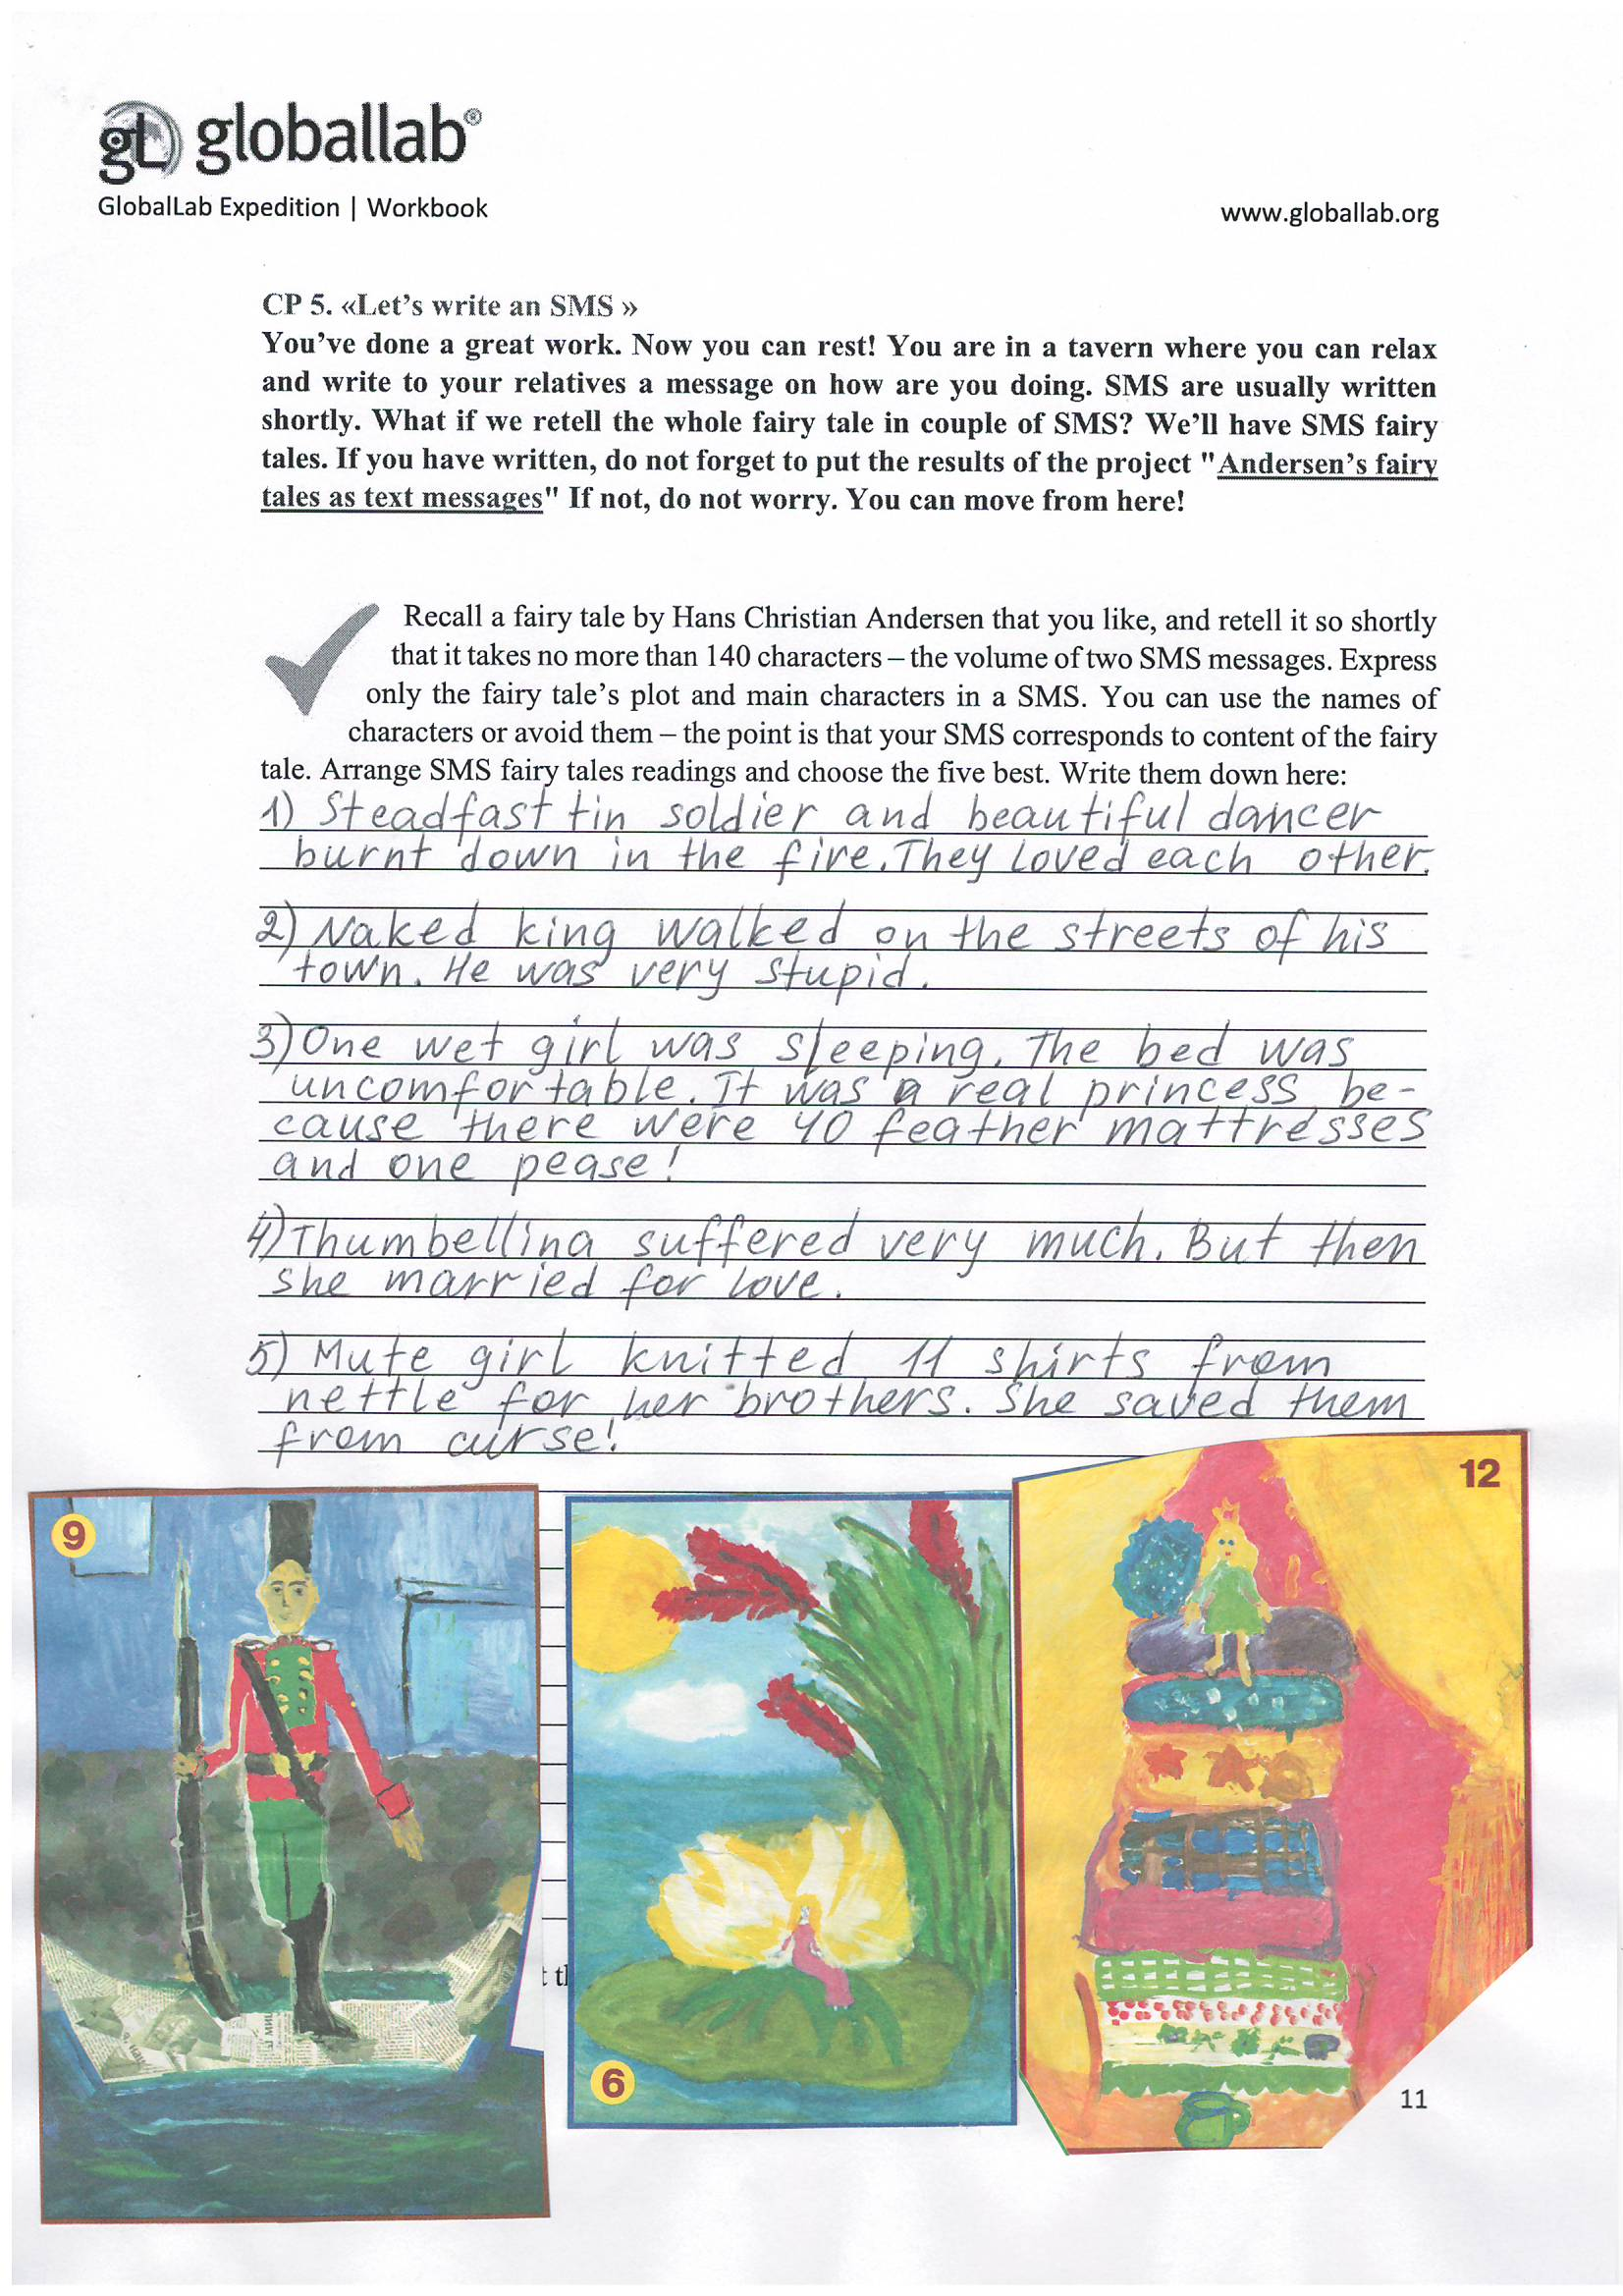 gL globallab®
GlobalLab Expedition | Workbook
www.globallab.org
CP 5. «Let's write an SMS »
You've done a great work. Now you can rest! You are in a tavern where you can relax
and write to your relatives a message on how are you doing. SMS are usually written
shortly. What if we retell the whole fairy tale in couple of SMS? We'll have SMS fairy
tales. If you have written, do not forget to put the results of the project "Andersen's fairy
tales as text messages" If not, do not worry. You can move from here!
Recall a fairy tale by Hans Christian Andersen that you like, and retell it so shortly
that it takes no more than 140 characters – the volume of two SMS messages. Express
only the fairy tale's plot and main characters in a SMS. You can use the names of
characters or avoid them – the point is that your SMS corresponds to content of the fairy
tale. Arrange SMS fairy tales readings and choose the five best. Write them down here:
1) Steadfast tin soldier and beautiful dancer
burnt down in the fire. They loved each other.
2) Naked king walked on the streets of his
town. He was very stupid.
3) One wet girl was sleeping. The bed was
uncomfortable. It was a real princess, be-
cause there were 40 feather mattresses
and one pease!
4) Thumbellina suffered very much. But then
she married for love.
5) Mute girl knitted 11 shirts from
nettle for her brothers. She saved them
from curse!
9
12
6
11